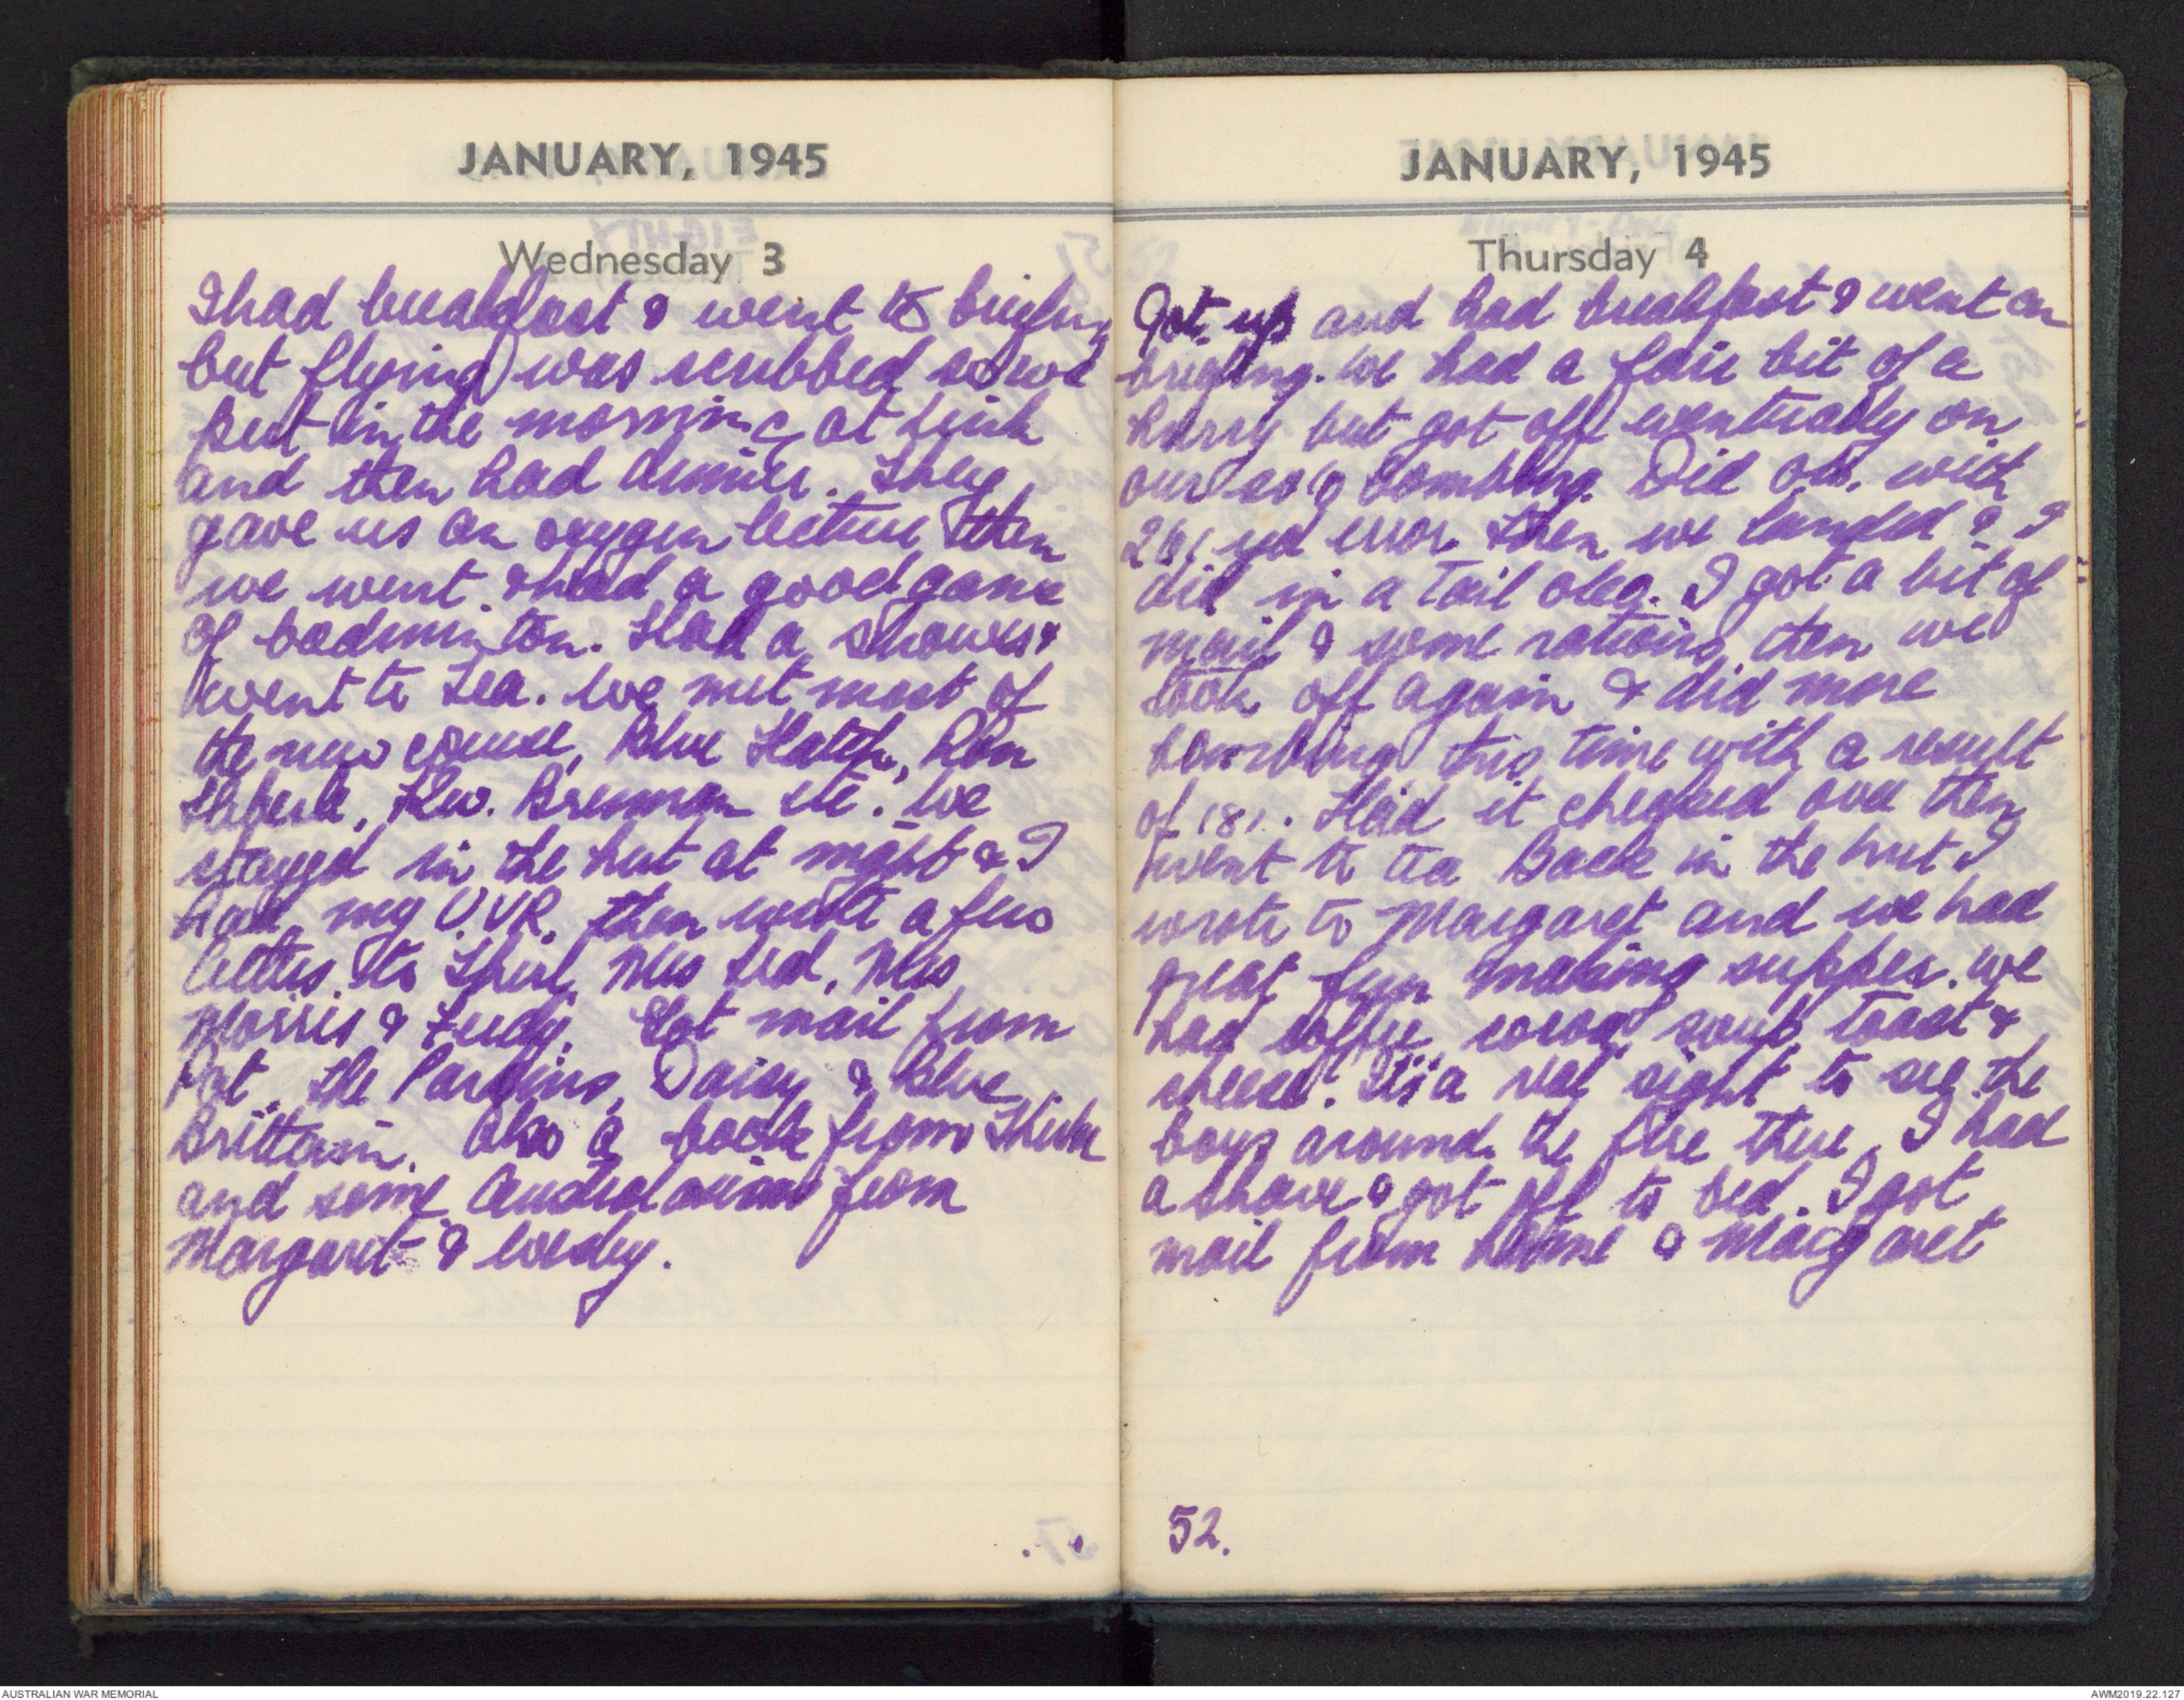 JANUARY, 1945
Wednesday 3
I had breakfast & went to briefing
but flying was scrubbed so we
put in the morning at Link
and then had dinner. They
gave us an oxygen lecture then
we went & had a good game
of badminton. Had a shower &
went to tea. We met most of
the new course, Blue Hatch, Ron
Kev. Brennan etc. We
stayed in the hut at night & I
had my then wrote a few
letters to Shirl, Mrs Ted, Mrs
Morris & Got mail from
Pat, the Parkins, Daisy & Blue
Brittain. Also a book from
and some from
Margaret &
JANUARY, 1945
Thursday 4
Got up and had breakfast & went on
briefing. We had a fair bit of a
hurry but got off eventually on
our bombing. Did ok. with
261 yd error then we landed & I
did in a tail oleo. I got a bit of
mail & some rations then we
took off again & did more
bombing this time with a result
of 181. Had it checked over then
went to tea Back in the hut I
wrote to Margaret and we had
great fun making supper. We
had coffee, cocoa, soup toast &
cheese. It's a real sight to see the
boys around the fire there. I had
a shave & got off to bed. I got
mail from home & Margaret
52.
AUSTRALIAN WAR MEMORIAL
AWM2019.22.127